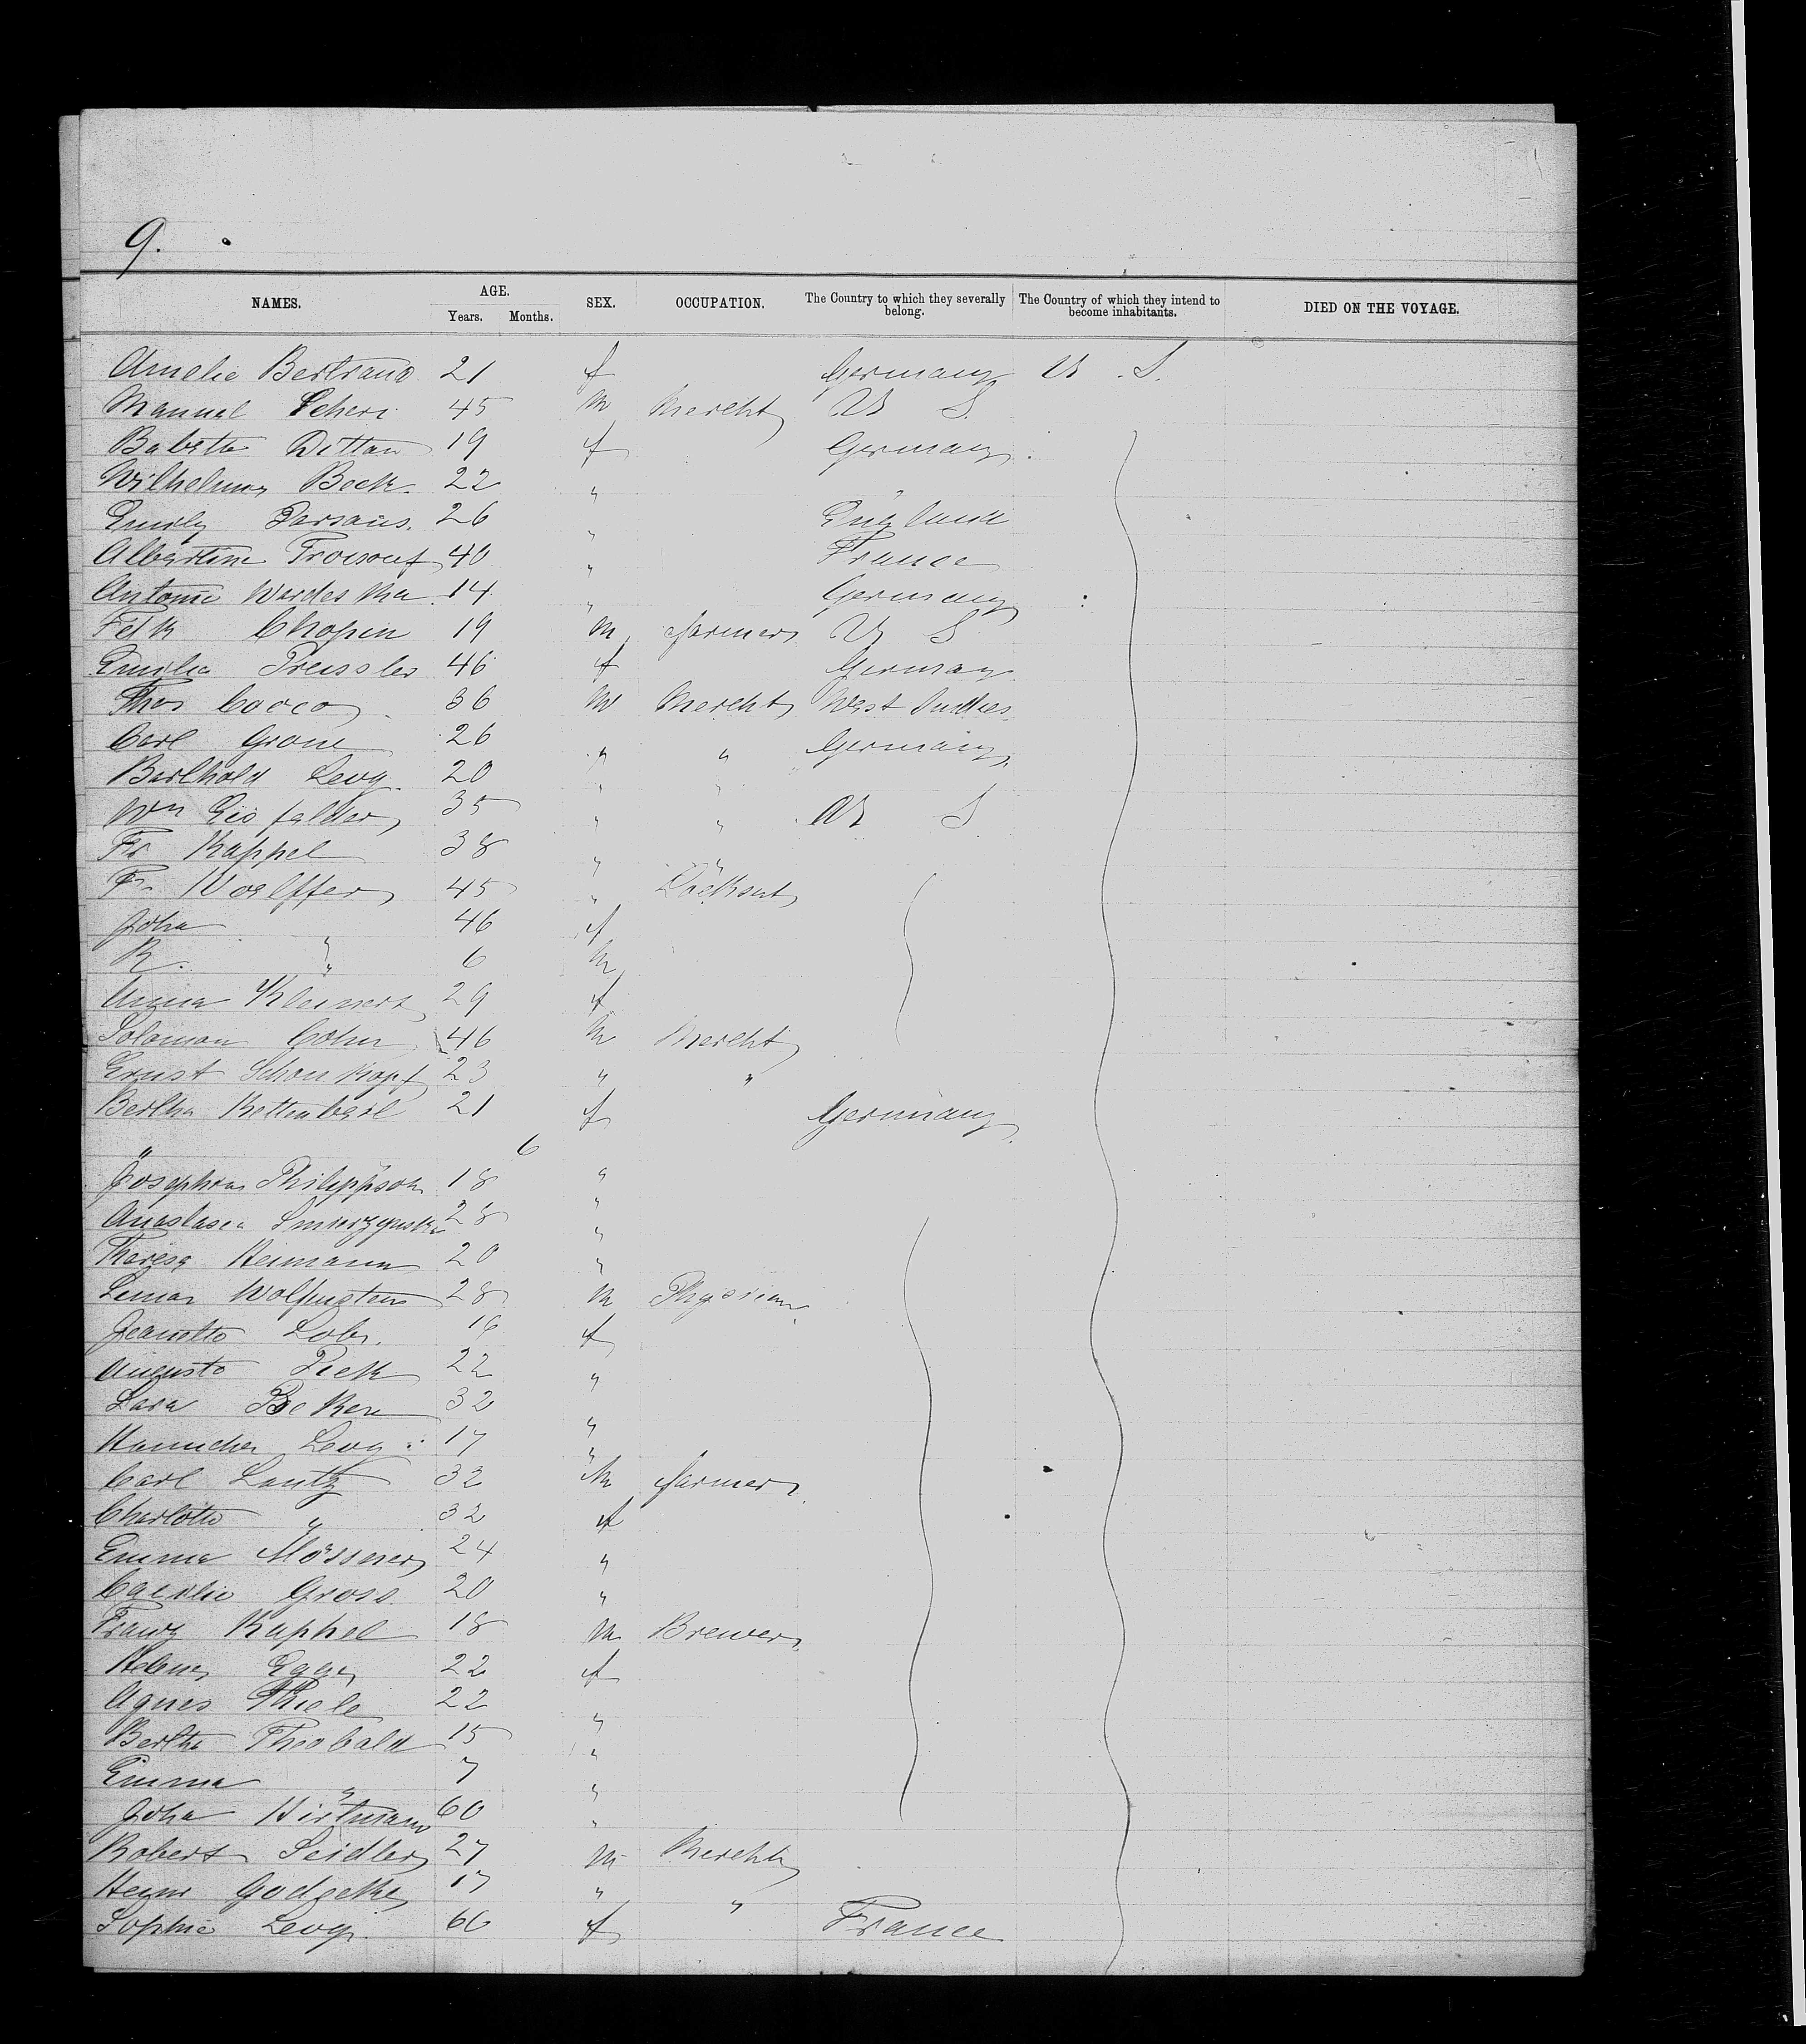 9.
NAMES. AGE. Years. Months. SEX. OCCUPATION. The Country to which they severally belong. The Country of which they intend to become inhabitants. DIED ON THE VOYAGE.
Amelie Bertrand 21 f Germany U. S.
Manuel 45 m Mercht U S.
Babette 19 f Germany
Wilhelmina Beck 22 "
Emily Parsons. 26 " England
Albertine 40 " France
Antonie 14 " Germany
Felix Chopin 19 m farmer U S
Emilia Preissler 46 f Germany
Thos Cocco 36 m Mercht West Indies
Carl Grone 26 " " Germany
Barthold Levy. 20 " "
Wm Eisfelder 35 " " U S
Fr Kappel 38 " "
Fr. Woelffer 45 "
Joha " 46 f
R. " 6 m
Anna Kleinert 29 f
Solomon Cohn 46 m Mercht
Ernst Schonkopf 23 " "
Bertha Kettenbeil 21 f Germany
" 6 "
Josephine Philippson 18 "
Anastasia 28 "
Theresa Heimann 20 "
Wolfenstein 28 m Physician
Jeanette Lobr. 16 f
Augusta Pick 22 "
Lara 32 "
Hannchen Levy 17 "
Carl Lantz 32 m farmer
Charlotte " 32 f
Emma Mössner 24 "
Caecilie Gross. 20 "
Franz Kappel 18 m Brewer
Helene Egge 22 f
Agnes Thiele 22 "
Bertha Theobald 15 "
Emma " 7 "
Joha Hirtmann 60 "
Robert Seidler 27 m Mercht
Heinr 17 " "
Sophie Levy. 60 f France